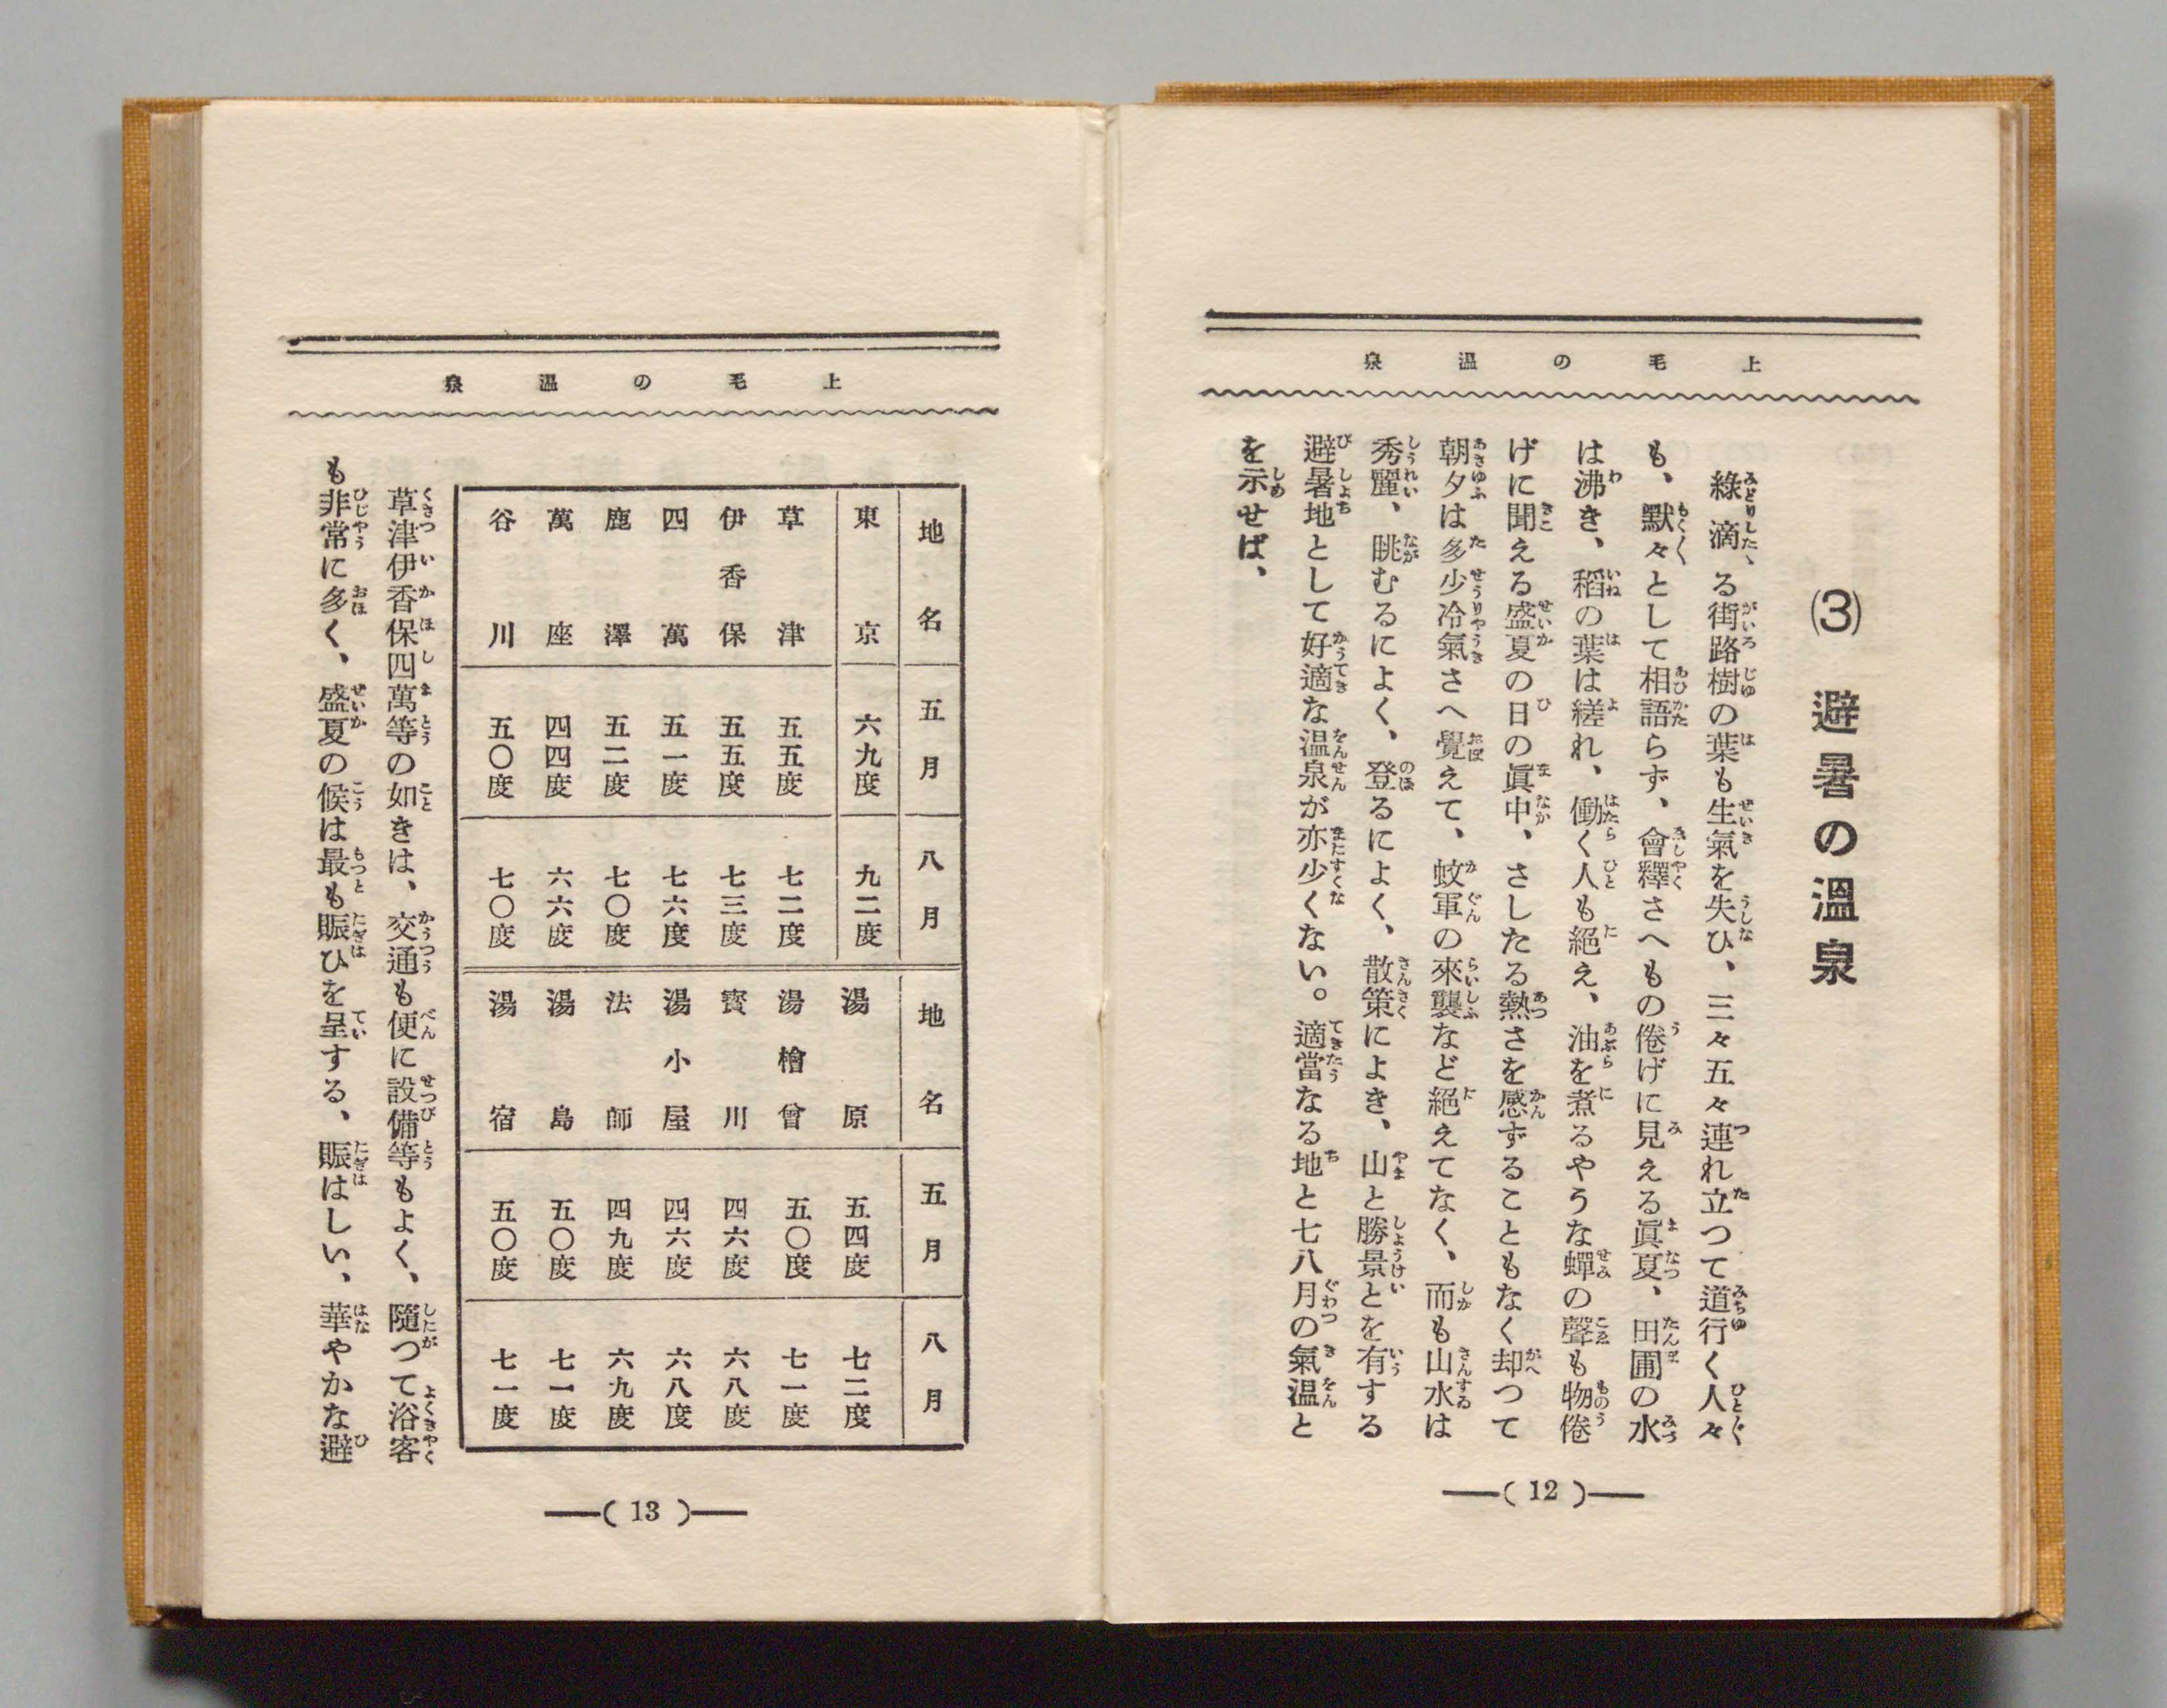 上毛の温泉
⑶ 避暑の溫泉
綠滴、る街路樹の葉も生氣を失ひ、三々五々連れ立つて道行く人々
も、默々として相語らず、會釋さへもの倦げに見える眞夏、田圃の水
は沸き、稻の葉は縒れ、働く人も絕え、油を煮るやうな蟬の聲も物倦
げに聞える盛夏の日の眞中、さしたる熱さを感ずることもなく却つて
朝夕は多少冷氣さへ覺えて、蚊軍の來襲など絕えてなく、而も山水は
秀麗、眺むるによく、登るによく、散策によき、山と勝景とを有する
避暑地として好適な温泉が亦少くない。適當なる地と七八月の氣温と
を示せば、
(12)
上毛の温泉
地名 五月 八月 地名 五月 八月
東京 六九度 九二度 湯原 五四度 七二度
草津 五五度 七二度 湯檜曾 五〇度 七一度
伊香保 五五度 七三度 寳川 四六度 六八度
四萬 五一度 七六度 湯小屋 四六度 六八度
鹿澤 五二度 七〇度 法師 四九度 六九度
萬座 四四度 六六度 湯島 五〇度 七一度
谷川 五〇度 七〇度 湯宿 五〇度 七一度
草津伊香保四萬等の如きは、交通も便に設備等もよく、隨つて浴客
も非常に多く、盛夏の候は最も賑ひを呈する、賑はしい、華やかな避
(13)